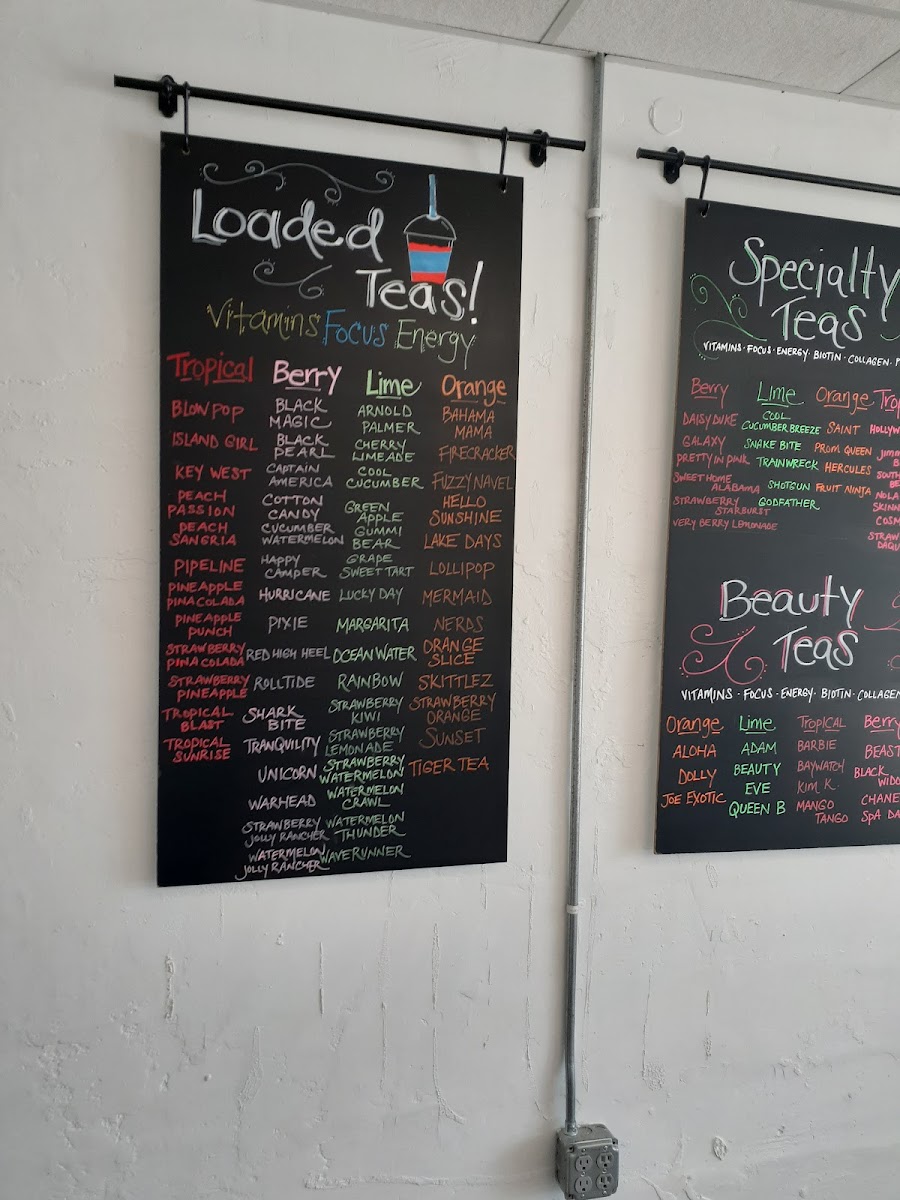 Loaded
Teas!
Vitamins Focus Energy
Tropical
BLOW POP
ISLAND GIRL
KEY WEST
PEACH
PASSION
PEACH
SANGRIA
PIPELINE
PINEAPPLE
PINA COLADA
PINEAPPLE
PUNCH
STRAWBERRY
PINA COLADA
STRAWBERRY
PINEAPPLE
TROPICAL
BLAST
TROPICAL
SUNRISE
Berry
BLACK
MAGIC
BLACK
PEARL
CAPTAIN
AMERICA
COTTON
CANDY
CUCUMBER
WATERMELON
HAPPY
CAMPER
HURRICANE
PIXIE
RED HIGH HEEL
ROLLTIDE
SHARK
BITE
TRANQUILITY
UNICORN
WARHEAD
STRAWBERRY
JOLLY RANCHER
WATERMELON
JOLLY RANCHER
Lime
ARNOLD
PALMER
CHERRY
LIMEADE
COOL
CUCUMBER
GREEN
APPLE
GUMMI
BEAR
GRAPE
SWEET TART
LUCKY DAY
MARGARITA
OCEAN WATER
RAINBOW
STRAWBERRY
KIWI
STRAWBERRY
LEMONADE
STRAWBERRY
WATERMELON
WATERMELON
CRAWL
WATERMELON
THUNDER
WAVERUNNER
Orange
BAHAMA
MAMA
FIRECRACKER
FUZZY NAVEL
HELLO
SUNSHINE
LAKE DAYS
LOLLIPOP
MERMAID
NERDS
ORANGE
SLICE
SKITTLEZ
STRAWBERRY
ORANGE
SUNSET
TIGER TEA
Specialty
Teas
VITAMINS · FOCUS · ENERGY · BIOTIN · COLLAGEN · P
Berry
DAISY DUKE
GALAXY
PRETTY IN PINK
SWEET HOME
ALABAMA
STRAWBERRY
STARBURST
VERY BERRY LEMONADE
Lime
COOL
CUCUMBER BREEZE
SNAKE BITE
TRAINWRECK
SHOTGUN
GODFATHER
Orange
SAINT
PROM QUEEN
HERCULES
FRUIT NINJA
Trop
HOLLYW
JIMM
B
SOUTH
BE
NOLA
SKINN
COSM
STRAW
DAQU
Beauty
Teas
VITAMINS · FOCUS · ENERGY · BIOTIN · COLLAGEN
Orange
ALOHA
DOLLY
JOE EXOTIC
Lime
ADAM
BEAUTY
EVE
QUEEN B
TROPICAL
BARBIE
BAYWATCH
KIM K
MANGO
TANGO
Berry
BEAST
BLACK
WIDO
CHANE
SPA DA